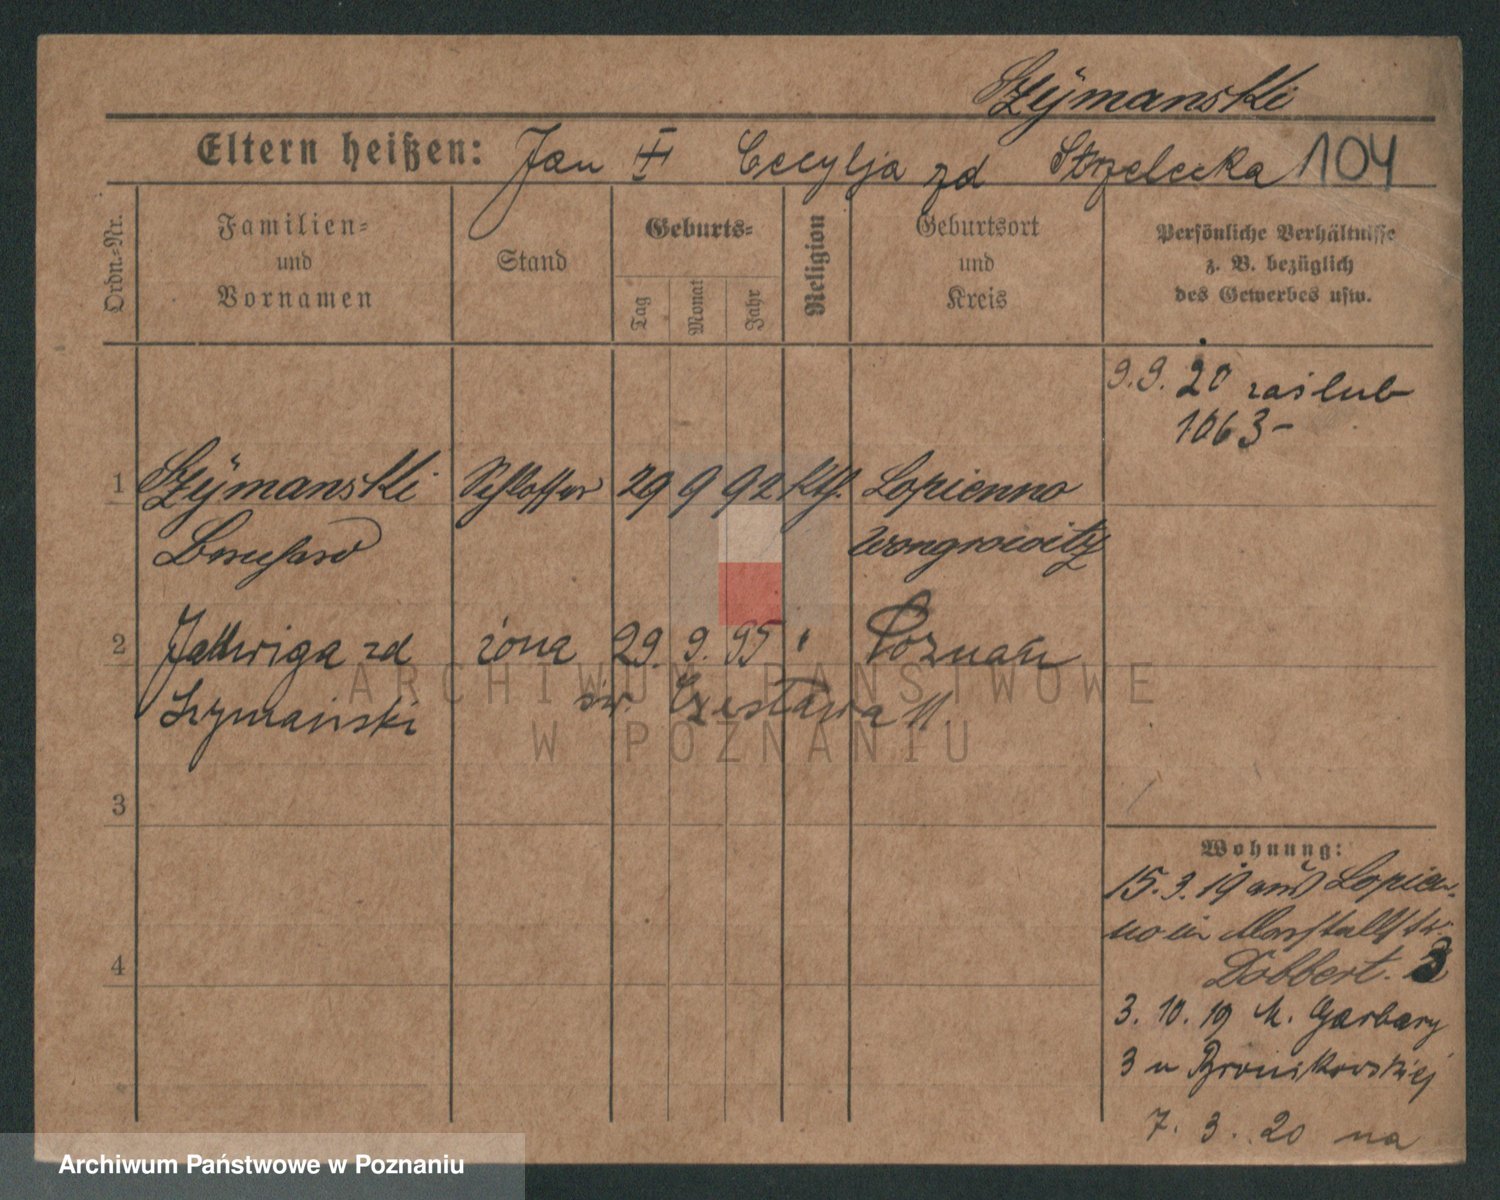 Szÿmanski
Eltern heißen: Jan Cecylja zd Strzelecka 104
Ordn.-Nr.
Familien-
und
Vornamen
Stand
Geburts-
Tag
Monat
Jahr
Religion
Geburtsort
und
Kreis
Persönliche Verhältnisse
z. B. bezüglich
des Gewerbes usw.
9.9.20 zaślub
1063-
1 Szÿmanski Schlosser 29 9 92 Kth. Lopienno
Wongrowitz
2 Jadwiga zd żona 29. 9. 95 " Poznań
Szymański św. Czesława 11
3
4
Wohnung:
15.3.19 aus Lopien-
no in Marstallstr.
Dobbert. 3
3. 10. 19 M. Garbary
3 u Bronikowskiej
7. 3. 20 na
ARCHIWUM PAŃSTWOWE
W POZNANIU
Archiwum Państwowe w Poznaniu